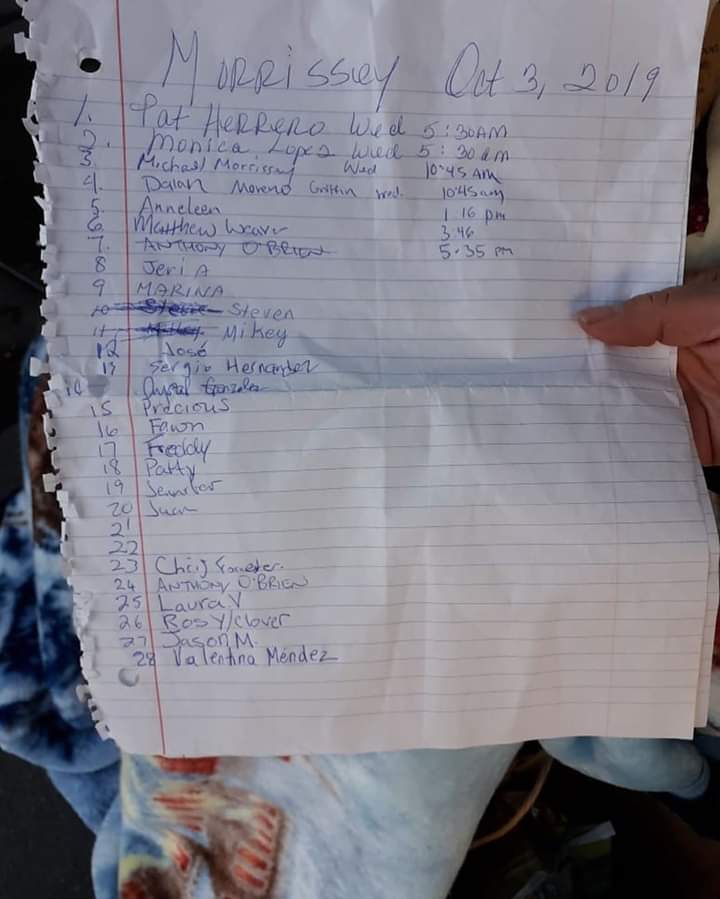 Morrissey Oct 3, 2019
1. Pat Herrero Wed 5:30AM
2. Monica Lopez Wed 5:30am
3. Michael Morrissey Wed 10:45 AM
4. Moreno Griffin Wed. 10:45am
5. Anneleen 1 16 pm
6. Matthew Weaver 3.46
7. ANTHONY O'BRIEN 5.35 pm
8 Jeri A
9 MARINA
10 Steven
11 Mikey
12 José
13 Sergio Hernandez
14 Crystal Gonzales
15 Precious
16 Fawn
17 Freddy
18 Patty
19 Jennifer
20 Juan
21
22
23
24 ANTHONY O'BRIEN
25 Laura V
26 Rosy/clover
27 Jason M.
28 Valentina Méndez